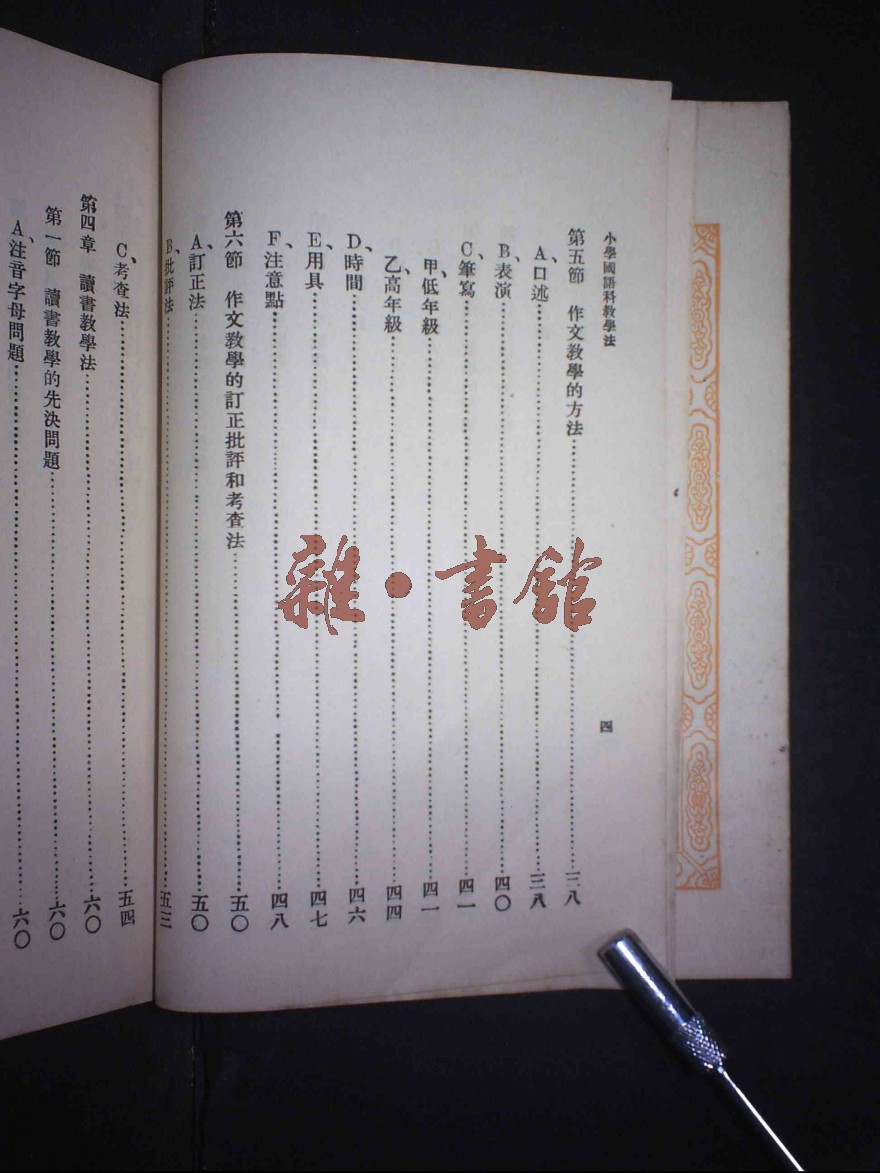 小學國語科敎學法
四
第五節 作文敎學的方法…三八
A、口述…三八
B、表演…四〇
C、筆寫…四一
甲、低年級…四一
乙、高年級…四四
D、時間…四六
E、用具…四七
F、注意點…四八
第六節 作文敎學的訂正批評和考查法…五〇
A、訂正法…五〇
B、批評法…五三
C、考查法…五四
第四章 讀書敎學法…六〇
第一節 讀書敎學的先決問題…六〇
A、注音字母問題…六〇
雜·書館